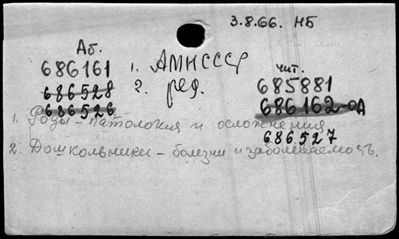 3.8.66. НБ
Аб.
686161 1. АМНСССР чит.
686528 2. ред. 685881
686526 686162-ОА
1. Роды – патология и осложнения
686527
2. Дошкольники – болезни и заболеваемость.